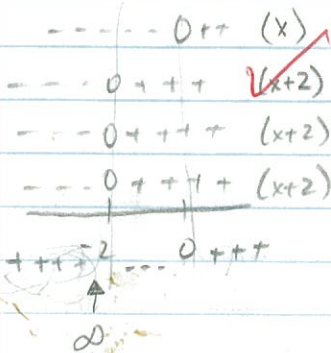 - - - - - - 0 + + (x)
- - - - 0 + + + + (x+2)
- - - - 0 + + + + (x+2)
- - - - 0 + + + + (x+2)
+ + + + -2 - - - - 0 + + +
∞